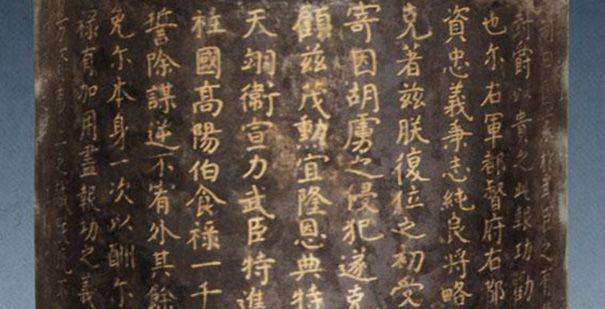 爵以貴之此報功勸
也尔右軍都督府右都
資忠義秉志純良將略
克著兹朕復位之初受
寄因胡虜之侵犯遂克
顧兹茂勳宜隆恩典特
天翊衛宣力武臣特進
柱國高陽伯食祿一千
誓除謀逆不宥外其餘
免尔本身一次以酬尔
祿有加用盡報功之義